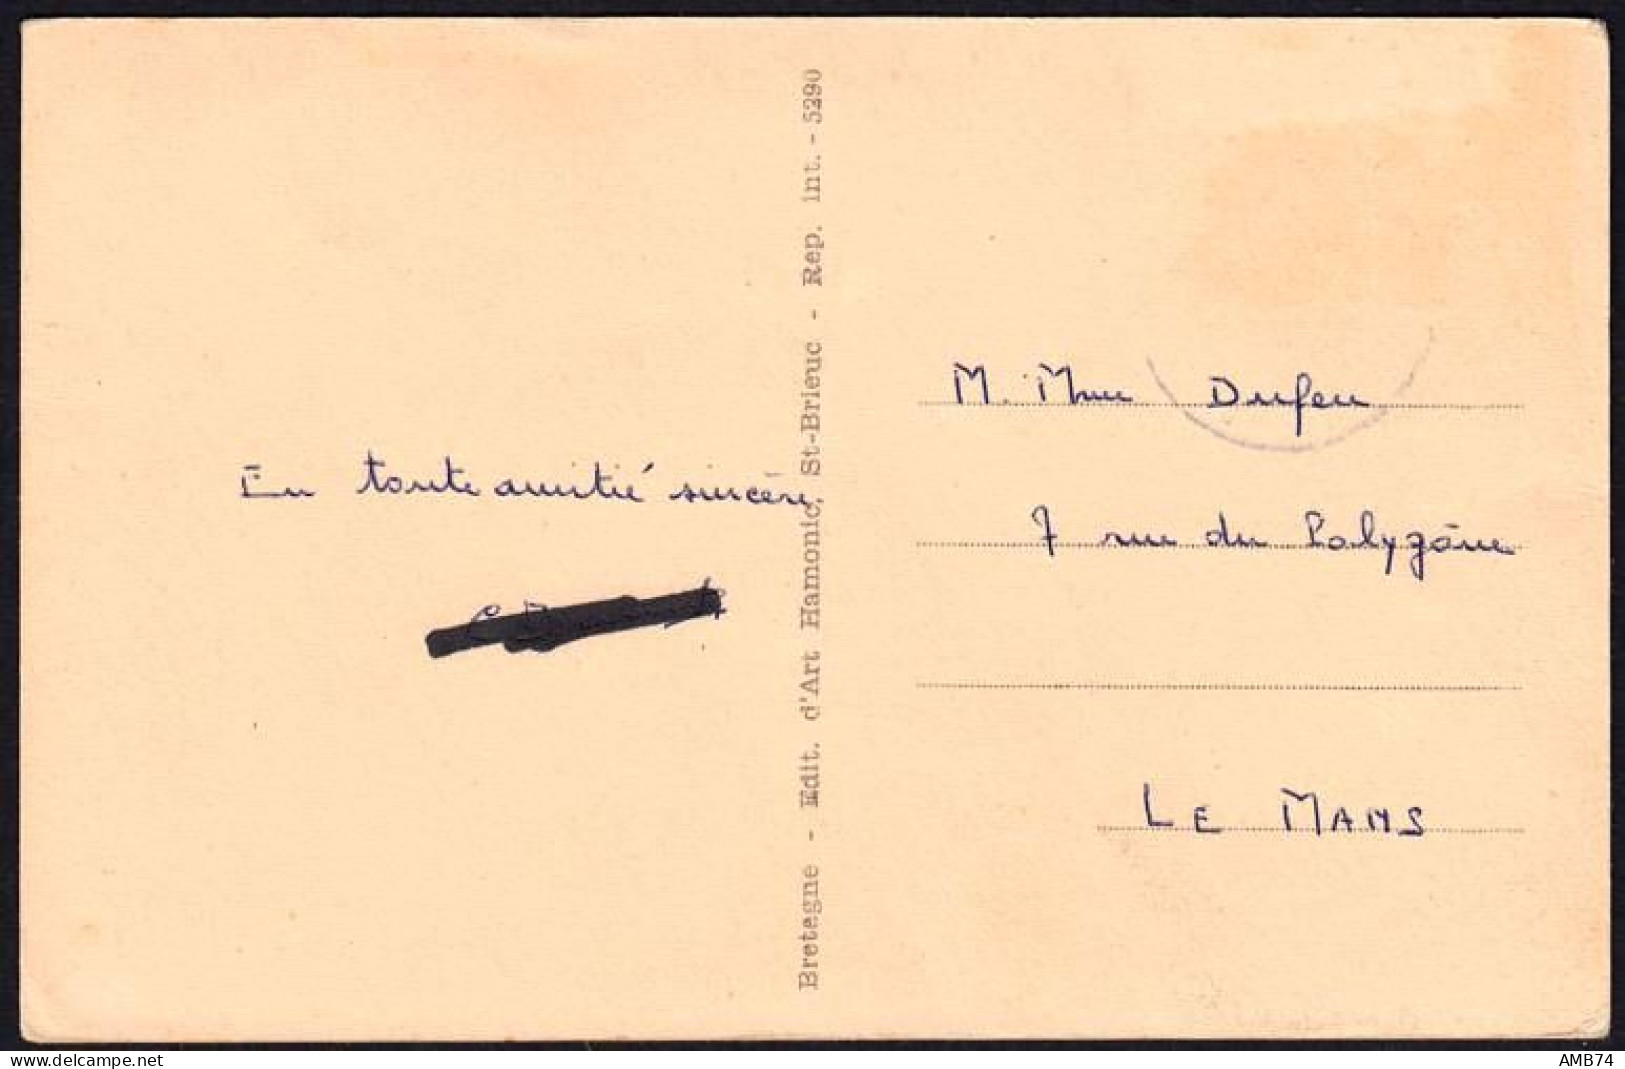 En toute amitié sincère
Bretegne - Edit. d'Art Hamonic, St-Brieuc - Rep. int. - 5290
M. Mme Dufeu
7 rue du Polygône
LE MANS
delcampe.net
AMB74